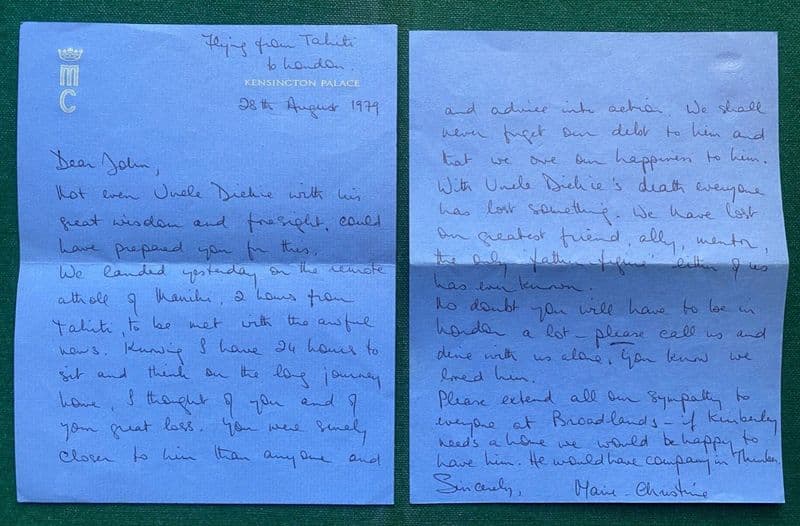 Flying from Tahiti
to London.
MC
KENSINGTON PALACE
28th August 1979
Dear John,
Not even Uncle Dickie with his
great wisdom and foresight, could
have prepared you for this.
We landed yesterday on the remote
atholl of Manihi, 2 hours from
Tahiti, to be met with the awful
news. Knowing I have 24 hours to
sit and think on the long journey
home, I thought of you and of
your great loss. You were surely
closer to him than anyone and
and advice into action. We shall
never forget our debt to him and
that we owe our happiness to him.
With Uncle Dickie's death everyone
has lost something. We have lost
our greatest friend, ally, mentor,
the only 'father figure' either of us
has ever known.
No doubt you will have to be in
London a lot - please call us and
dine with us alone. You know we
loved him.
Please extend all our sympathy to
everyone at Broadlands - if Kimberley
needs a home we would be happy to
have him. He would have company in
Sincerely, Marie-Christine